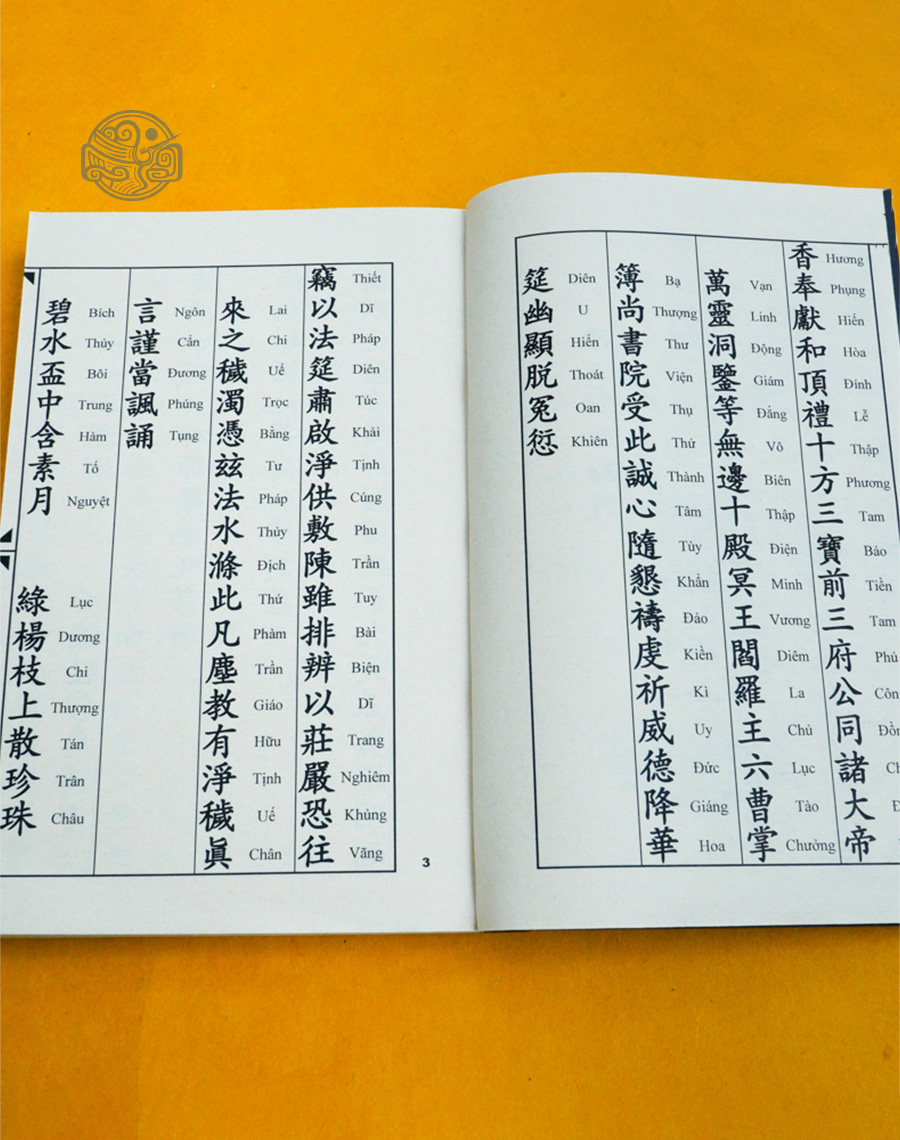 香奉獻和頂禮十方三寶前三府公同諸大帝
Hương Phụng Hiến Hòa Đính Lễ Thập Phương Tam Bảo Tiền Tam Phủ
萬靈洞鑒等無邊十殿冥王閻羅主六曹掌
Vạn Linh Động Giám Đẳng Vô Biên Thập Điện Minh Vương Diêm La Chủ Lục Tào Chưởng
簿尚書院受此誠心隨懇禱虔祈威德降華
Bạ Thượng Thư Viện Thụ Thử Thành Tâm Tùy Khẩn Đảo Kiền Kì Uy Đức Giáng Hoa
筵幽顯脱冤愆
Diên U Hiển Thoát Oan Khiên
竊以法筵肅啟淨供敷陳雖排辨以莊嚴恐往
Thiết Dĩ Pháp Diên Túc Khải Tịnh Cúng Phu Trần Tuy Bài Biện Dĩ Trang Nghiêm Khủng Vãng
來之穢濁憑玆法水滌此凡塵教有淨穢眞
Lai Chi Uế Trọc Bằng Tư Pháp Thủy Địch Thử Phàm Trần Giáo Hữu Tịnh Uế Chân
言謹當諷誦
Ngôn Cẩn Đương Phúng Tụng
碧水盃中含素月
Bích Thủy Bôi Trung Hàm Tố Nguyệt
綠楊枝上散珍珠
Lục Dương Chi Thượng Tán Trân Châu
3